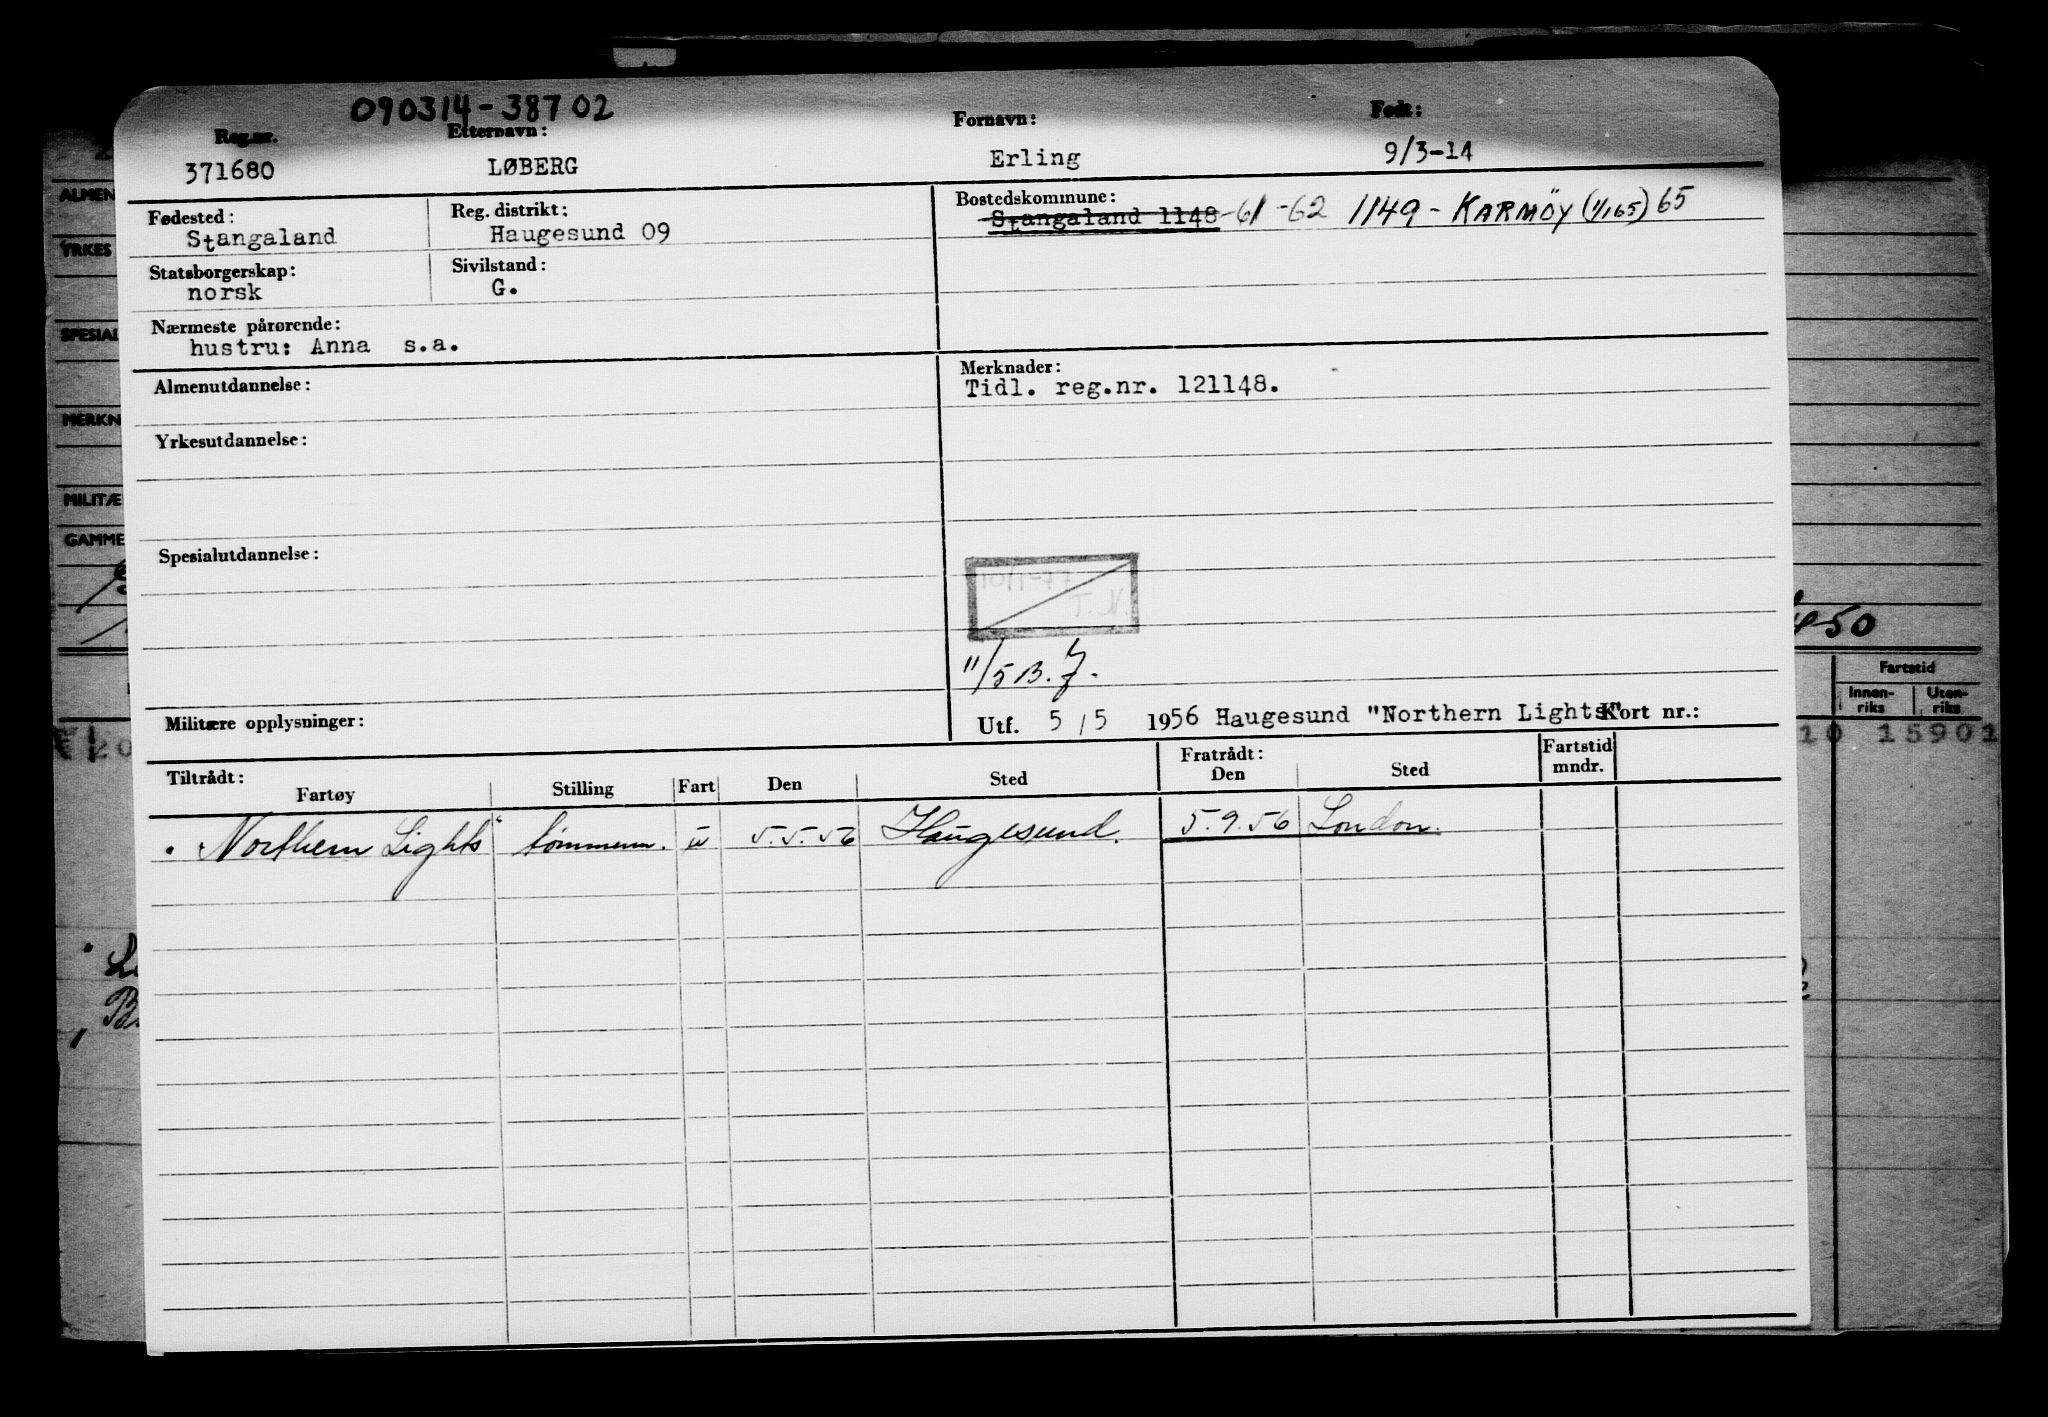 090314-38702
Reg.nr. Etternavn: Fornavn: Født:
371680 LØBERG Erling 9/3-14
Fødested: Reg. distrikt: Bostedskommune:
Stangaland Haugesund 09 Stangaland 1148 -61 -62 1149 - KARMÖY (1/165) 65
Statsborgerskap: Sivilstand:
norsk G.
Nærmeste pårørende:
hustru: Anna s.a.
Almenutdannelse: Merknader:
Tidl. reg.nr. 121148.
Yrkesutdannelse:
Spesialutdannelse:
10/1-77
T.N.
11/5 B.
Militære opplysninger: Utf. 5/5 1956 Haugesund "Northern Lights" Kort nr.:
Tiltrådt: Fratrådt: Fartstid
Fartøy Stilling Fart Den Sted Den Sted mndr.
Northern Lights tømmerm. u 5.5.56 Haugesund. 5.9.56 London.
ALMEN
YRKES
SPESIAL
MERKN
MILITÆ
GAMME
450
Fartstid
Innen-
riks
Uten-
riks
20
10 15901